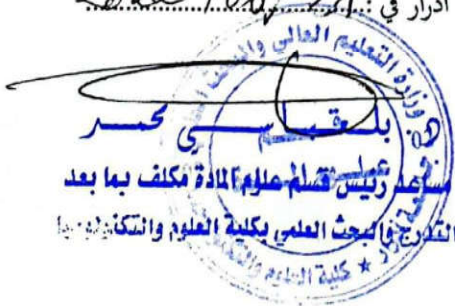 أدرار في :
وزارة التعليم العالي والبحث
بلقاسم سي محمد
مساعد رئيس قسم علوم المادة مكلف بما بعد
التدرج والبحث العلمي بكلية العلوم والتكنولوجيا
كلية العلوم والتكنولوجيا